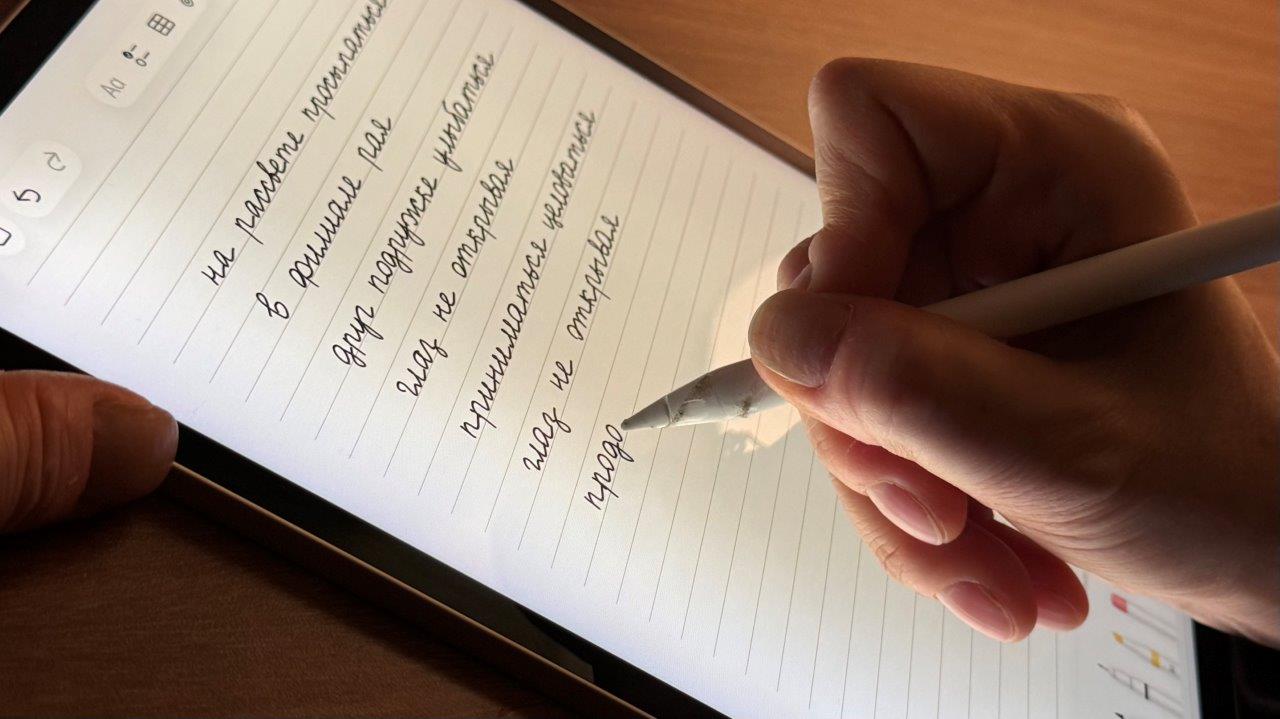 Aa
на рассвете просыпаться
в филиале рая
друг подружке улыбаться
глаз не открывая
приниматься целоваться
глаз не открывая
продо